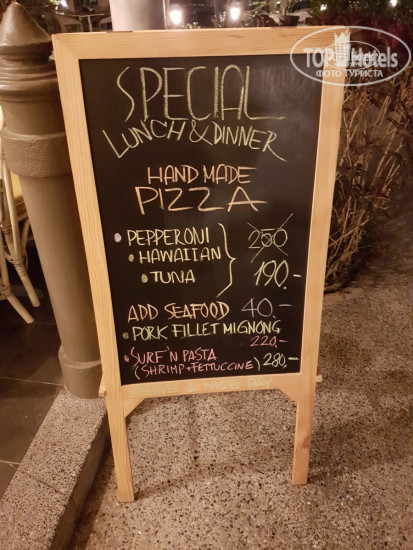 TOPHotels
ФОТО ТУРИСТА
SPECIAL
LUNCH & DINNER
HAND MADE
PIZZA
PEPPERONI 250
HAWAIIAN
TUNA 190.-
ADD SEAFOOD 40.-
PORK FILLET MIGNONG
220.-
SURF'N PASTA
(SHRIMP+FETTUCCINE) 280.-
HAVE A NICE DAY